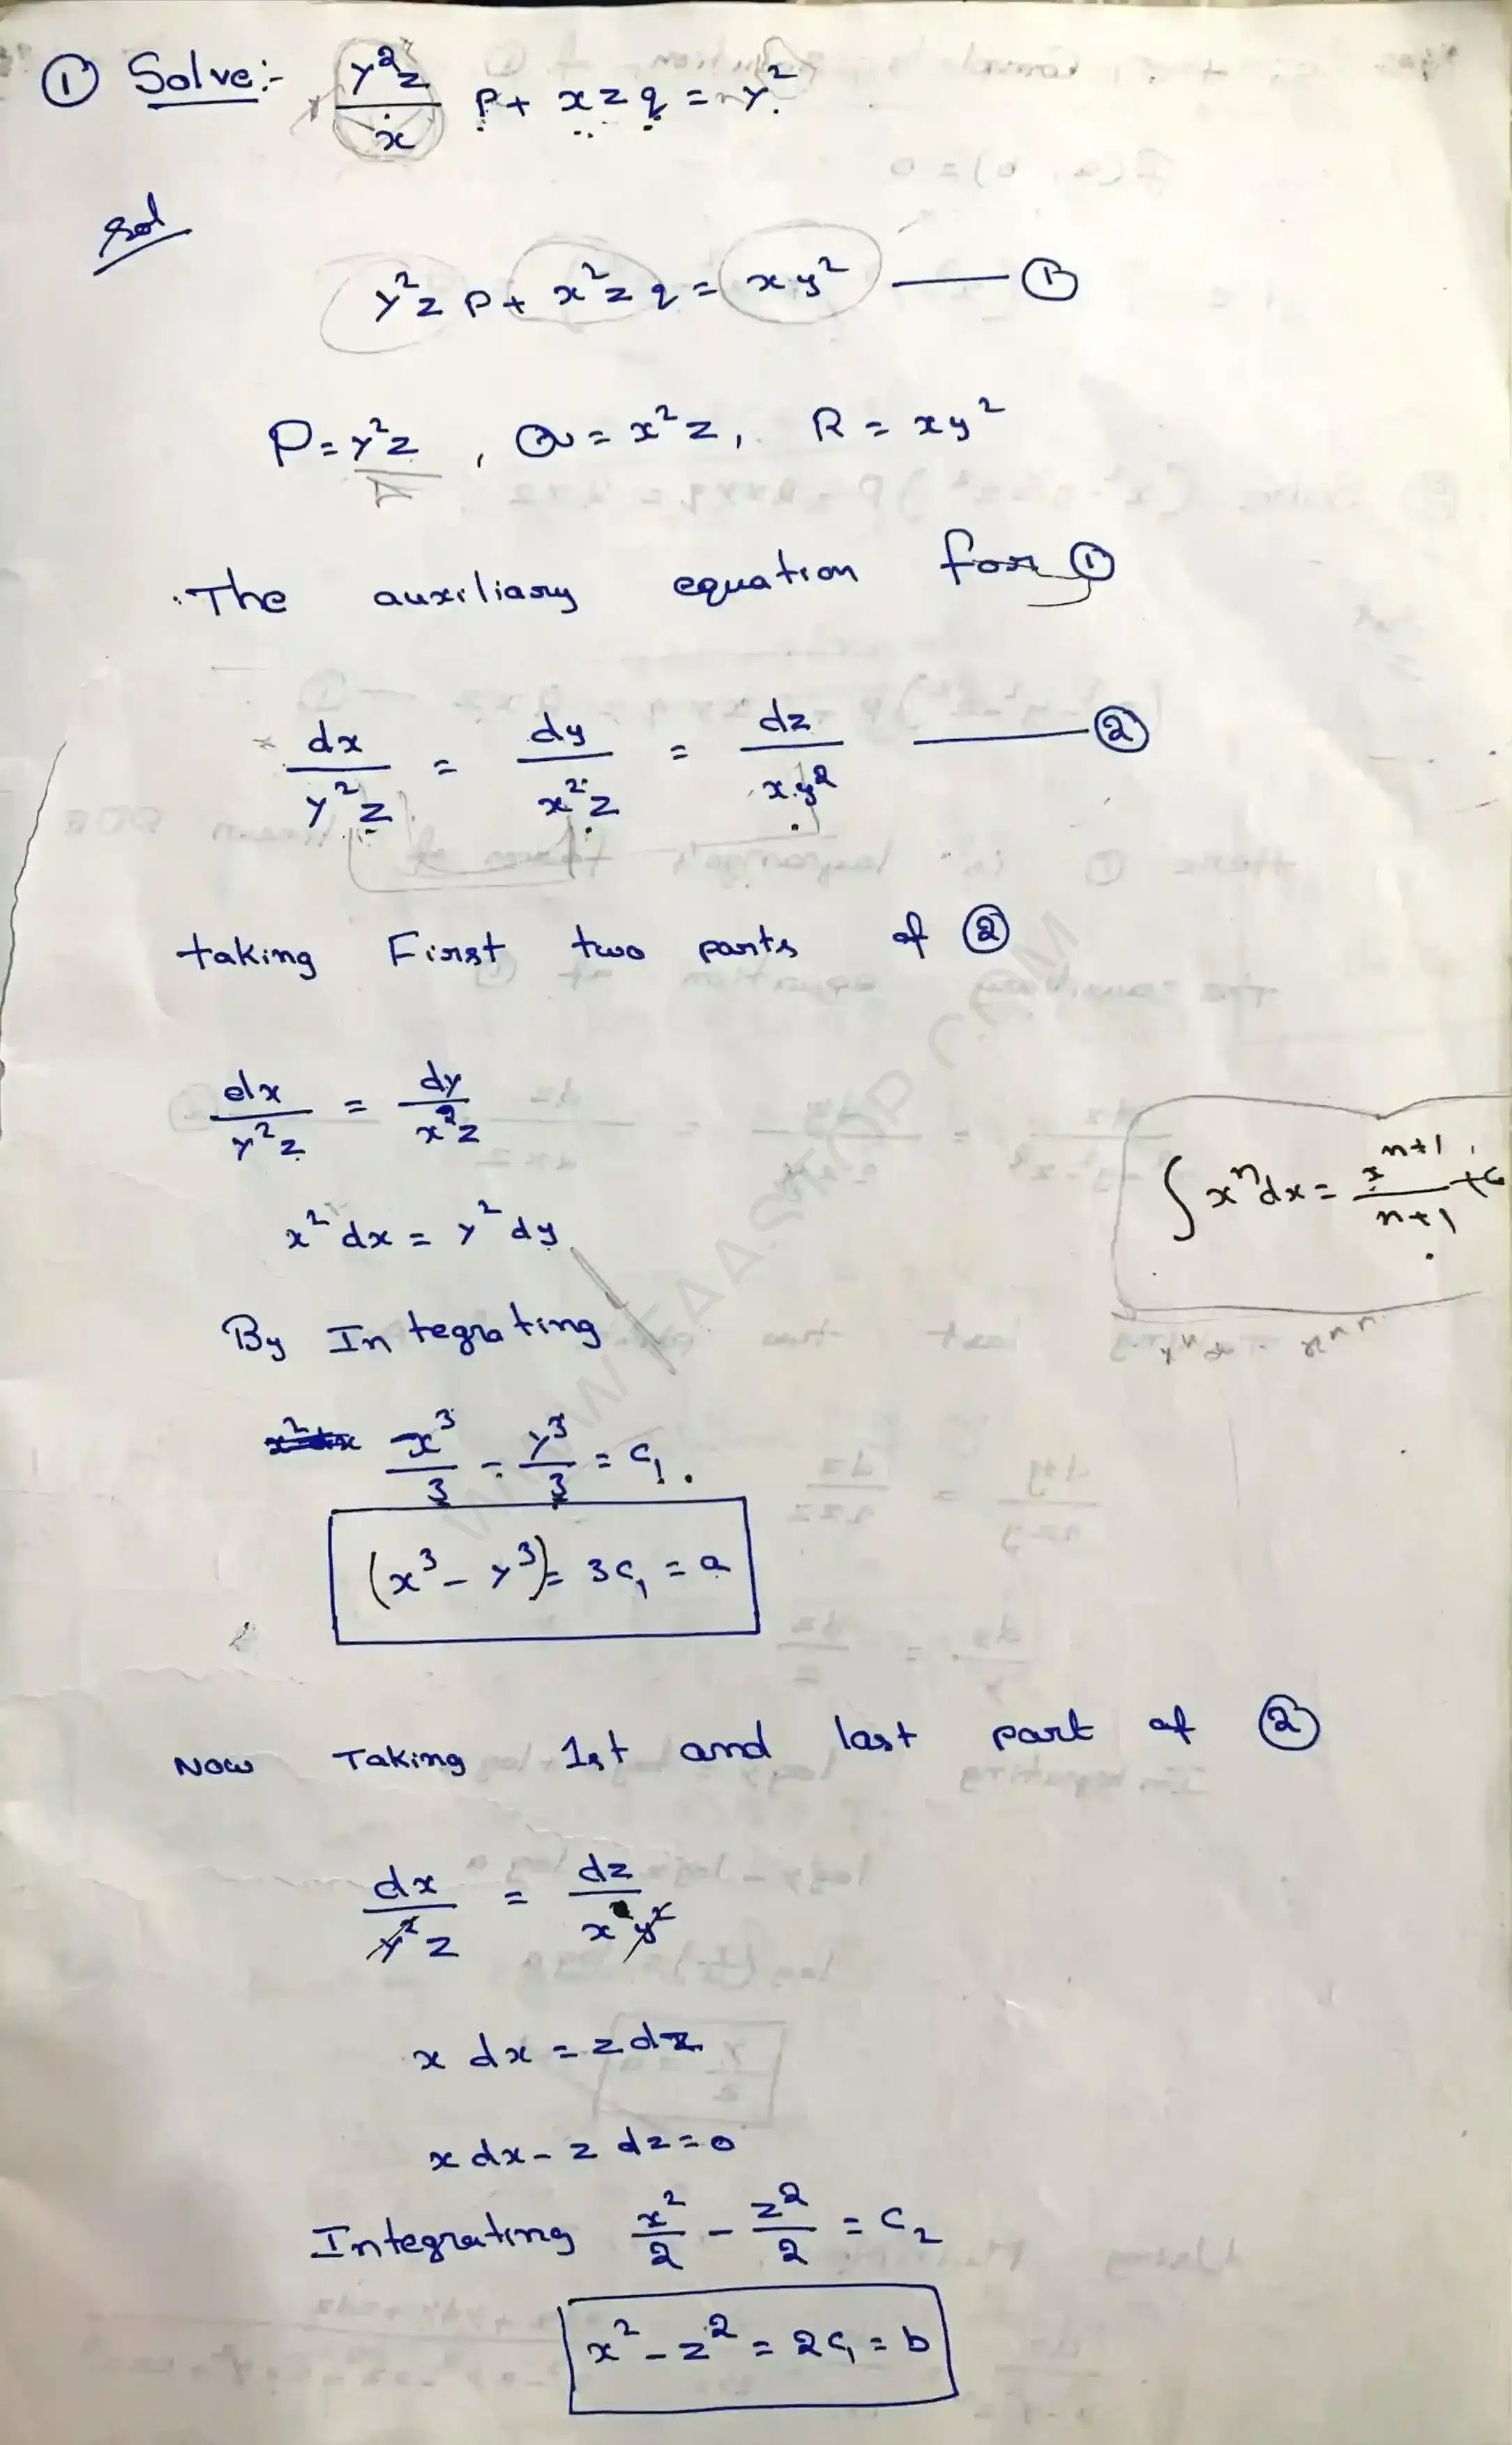 ① Solve:- y²z/x p + xzq = y²
Sol
y²z p + x²z q = xy² —— ①
P = y²z , Q = x²z, R = xy²
The auxiliary equation for ①
dx/y²z = dy/x²z = dz/xy² —— ②
taking First two parts of ②
dx/y²z = dy/x²z
∫xⁿdx = xⁿ⁺¹/n+1 + c
x² dx = y² dy
By Integrating
x³/3 - y³/3 = c₁.
(x³ - y³) = 3c₁ = a
Now Taking 1st and last part of ②
dx/y²z = dz/xy²
x dx = z dz
x dx - z dz = 0
Integrating x²/2 - z²/2 = c₂
x² - z² = 2c₁ = b